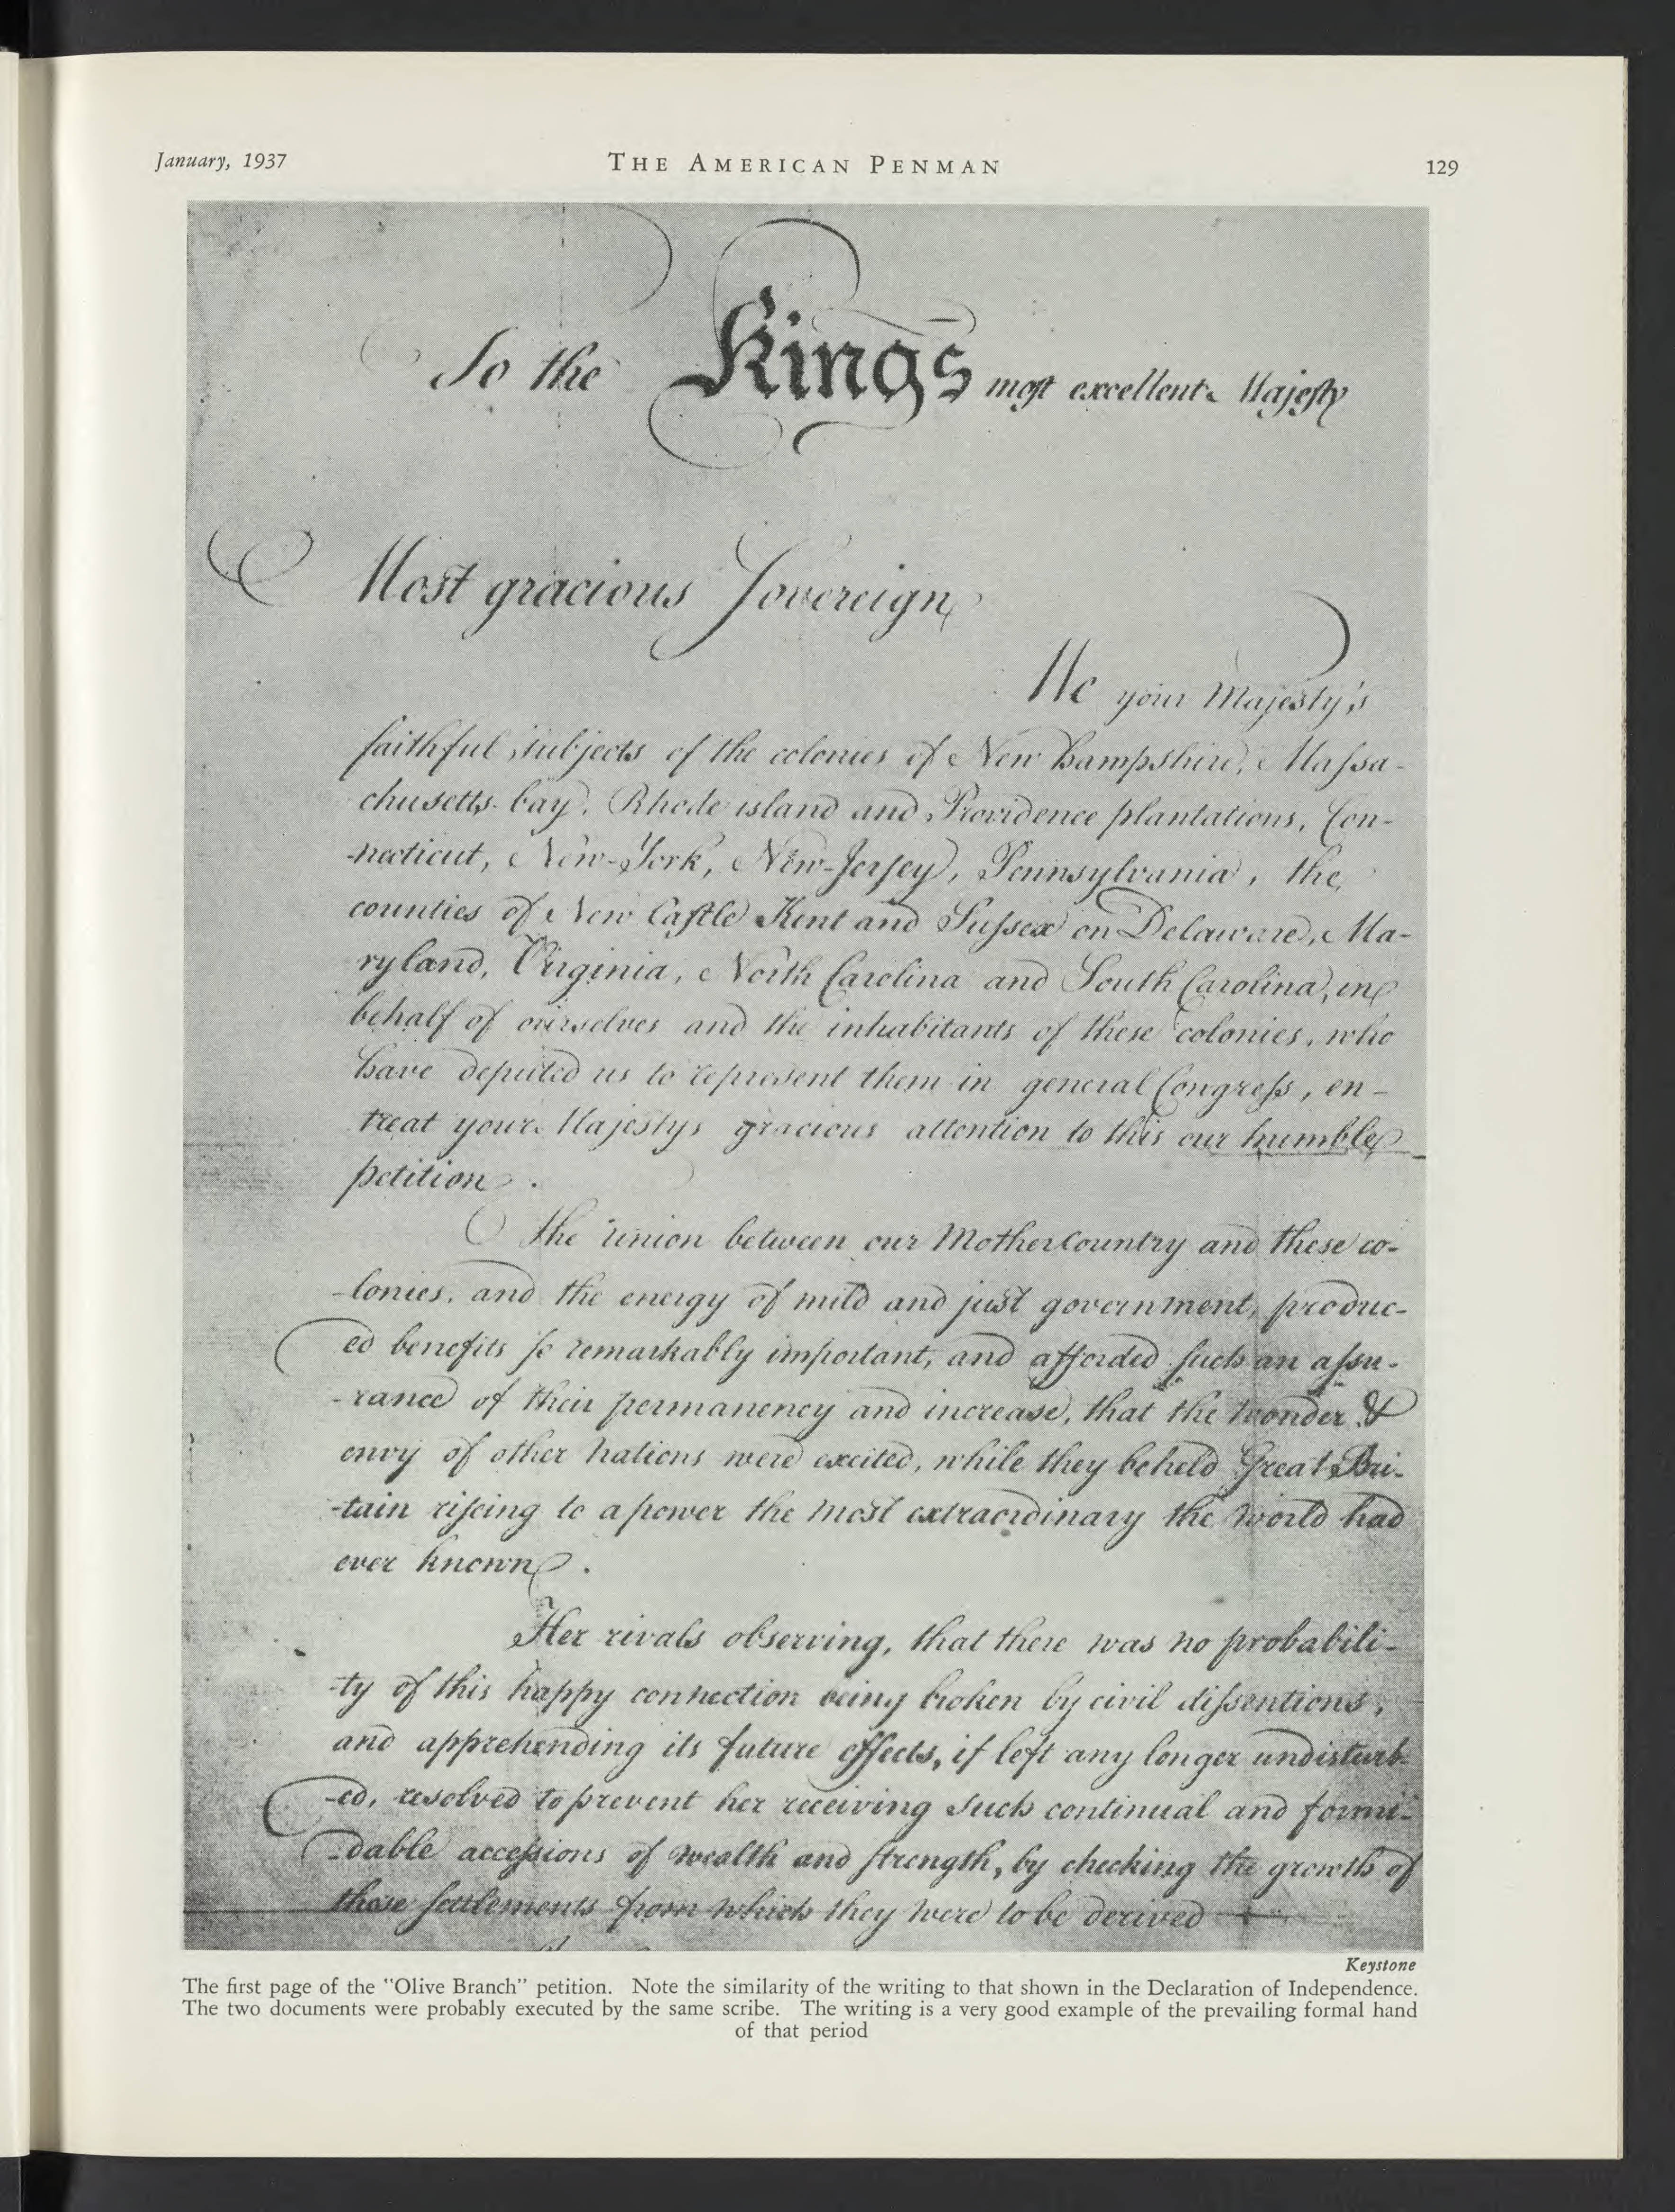 January, 1937
THE AMERICAN PENMAN
129
To the Kings most excellent Majesty
Most gracious Sovereign,
We your Majesty's
faithful subjects of the colonies of New hampshire, Massa-
chusetts-bay, Rhode island and Providence plantations, Con-
-necticut, New-York, New-Jersey, Pennsylvania, the
counties of New Castle Kent and Sussex on Delaware, Ma-
ryland, Virginia, North Carolina and South Carolina, in
behalf of ourselves and the inhabitants of these colonies, who
have deputed us to represent them in general Congress, en-
treat your Majestys gracious attention to this our humble
petition.
The union between our Mother Country and these co-
-lonies, and the energy of mild and just government, produc-
ed benefits so remarkably important, and afforded such an assu-
-rance of their permanency and increase, that the wonder &
envy of other nations were excited, while they beheld Great Bri-
-tain riseing to a power the most extraordinary the world had
ever known.
Her rivals observing, that there was no probabili-
-ty of this happy connection being broken by civil dissentions,
and apprehending its future effects, if left any longer undisturb-
-ed, resolved to prevent her receiving such continual and formi-
-dable accessions of wealth and strength, by checking the growth of
those settlements from which they were to be derived
Keystone
The first page of the "Olive Branch" petition. Note the similarity of the writing to that shown in the Declaration of Independence.
The two documents were probably executed by the same scribe. The writing is a very good example of the prevailing formal hand
of that period